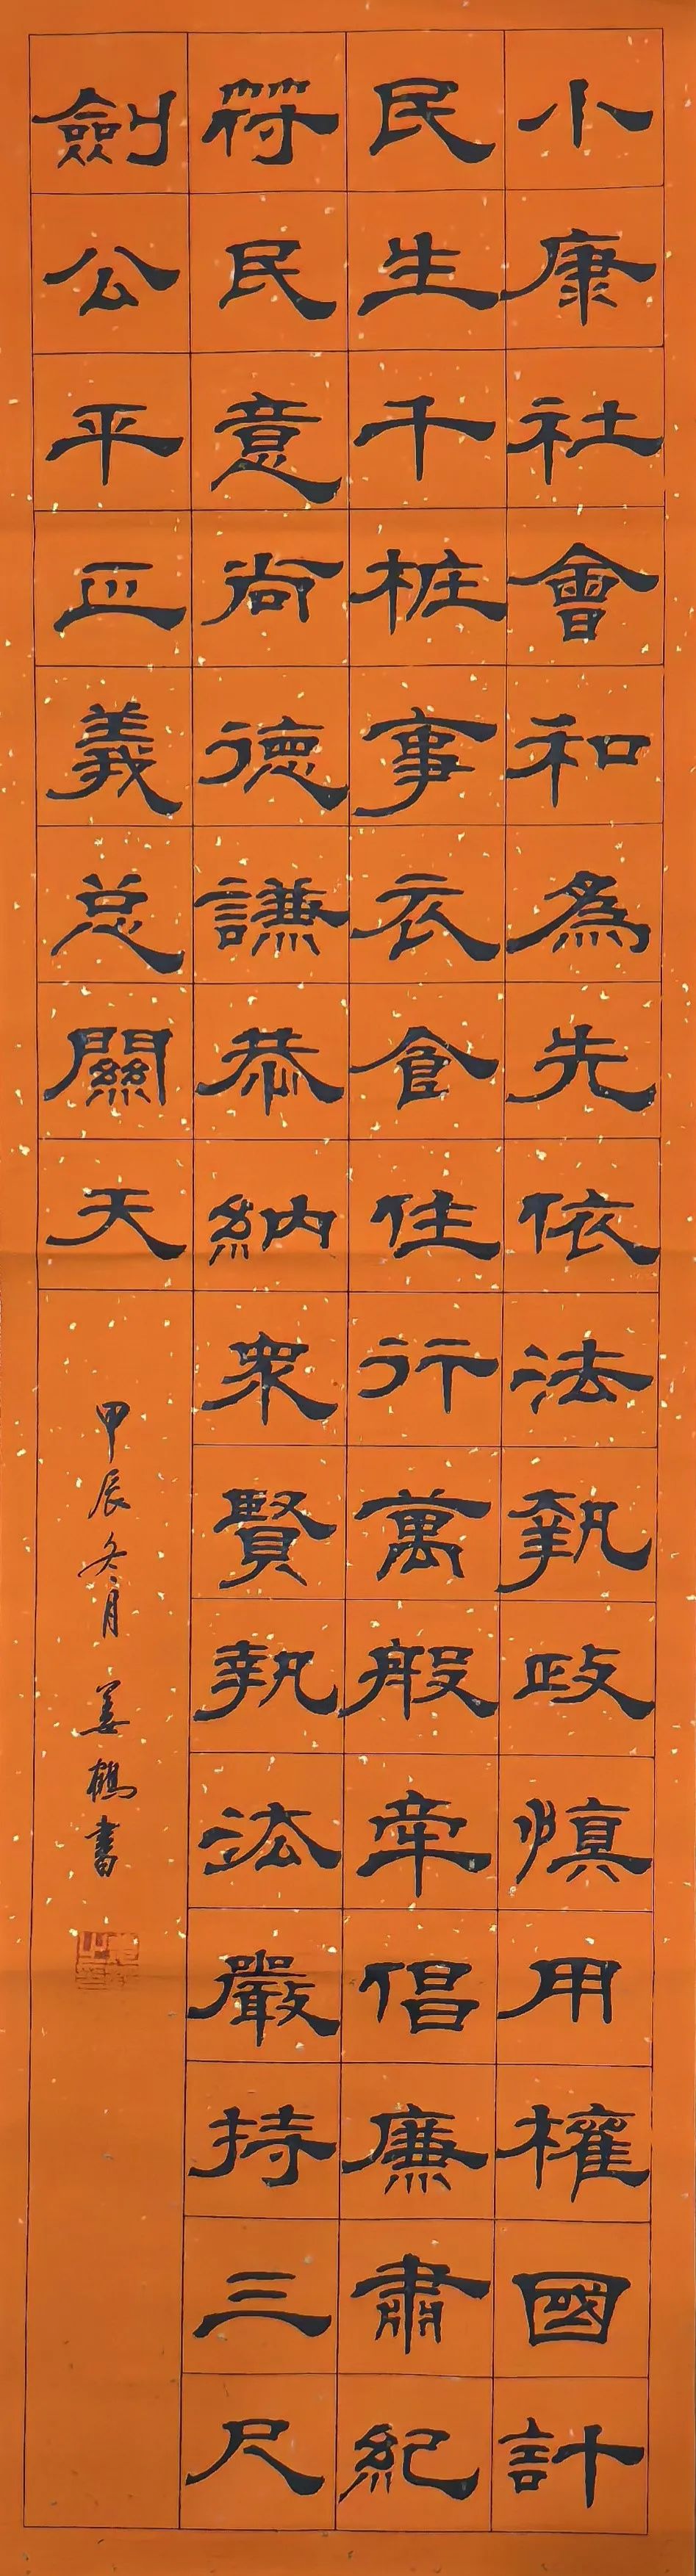 小康社會和為先依法執政慎用權國計
民生千桩事衣食住行萬般牵倡廉肅紀
符民意尚德謙恭納衆賢執法嚴持三尺
劍公平正義总關天
甲辰冬月 姜鶴書